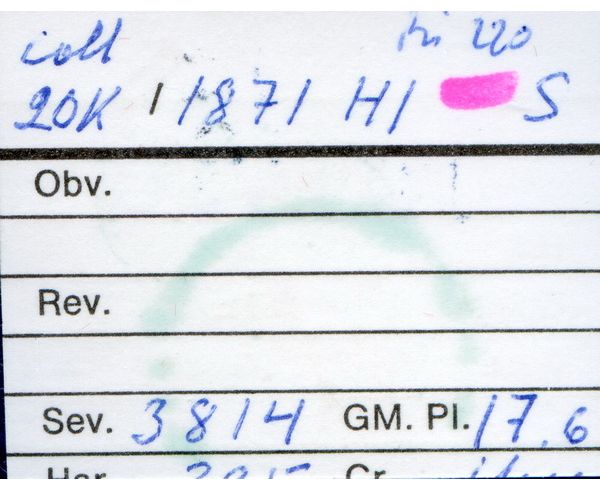 coll 220
20K 1871 HI S
Obv.
Rev.
Sev. 3814 GM. Pl. 17.6
Har Cr